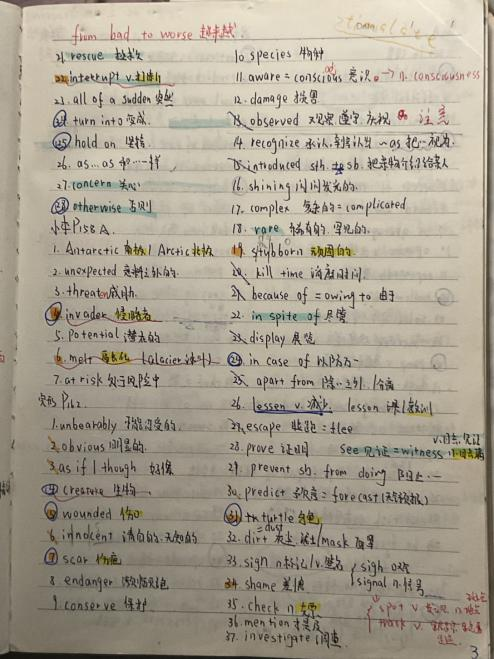 from bad to worse 越来越
translate
21. rescue 拯救
22. interrupt v. 打断
23. all of a sudden 突然
24. turn into 变成
25. hold on 坚持
26. as...as 和···一样
27. concern 关心
28. otherwise 否则
P158 A.
1. Antarctic 南极 / Arctic 北极
2. unexpected 意料之外的.
3. threaten 威胁.
4. invader 侵略者
5. Potential 潜在的
6. melt 融化 (glacier 冰川)
7. at risk 处于风险中
P162.
1. unbearably 不能忍受的
2. obvious 明显的.
3. as if / though 好像
4. creature 生物
5. wounded 伤口
6. innocent 清白的. 无知的
7. scar 伤疤
8. endanger
9. conserve 保护
10. species 物种
11. aware = conscious 意识 → n. consciousness
12. damage 损害
13. observed 观察 遵守. 庆祝 注意
14. recognize 承认. 辨认出 ~as 把···视为.
15. introduced sth. to sb. 把某物介绍给某人
16. shining 闪闪发光的.
17. complex 复杂的 = complicated
18. rare 稀有的. 罕见的.
19. stubborn 顽固的.
20. kill time 消磨时间.
21. because of = owing to 由于
22. in spite of 尽管
23. display 展览
24. in case of 以防万一
25. apart from 除···之外. /分离
26. lessen v. 减少. lesson 课 / 教训
27. escape 逃跑 = flee
28. prove 证明 see 见证 = witness
29. prevent sb. from doing 阻止···
30. predict 预度 = forecast (天气预报)
31. turtle 乌龟
32. dirt = dust mask 面罩
33. sign n. 标记 / v. 签名 sigh 叹
signal n. 信号
34. shame 羞愧
35. check n. spot v. 发现 n. 地点
36. mention 提及 track v.
37. investigate 调查
3